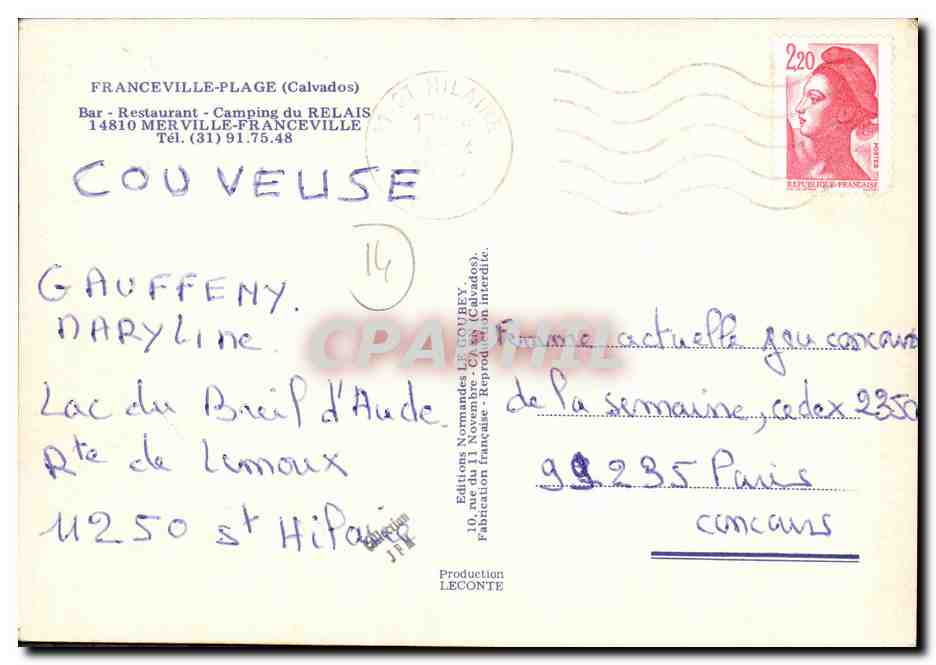 FRANCEVILLE-PLAGE (Calvados)
Bar - Restaurant - Camping du RELAIS
14810 MERVILLE-FRANCEVILLE
Tél. (31) 91.75.48
COUVEUSE
14
GAUFFENY.
MARYLINE
Lac du Breil d'Aude
Rte de Limoux
11250 St Hilaire
Collection
JFM
Editions Normandes LE GOUBEY.
10, rue du 11 Novembre - CAEN (Calvados).
Fabrication française - Reproduction interdite.
Production
LECONTE
ST HILAIRE
2,20
POSTES
REPUBLIQUE-FRANÇAISE
CPAPHIL
Femme actuelle jeu concours
de la semaine, cedex 2350
99235 Paris
concours